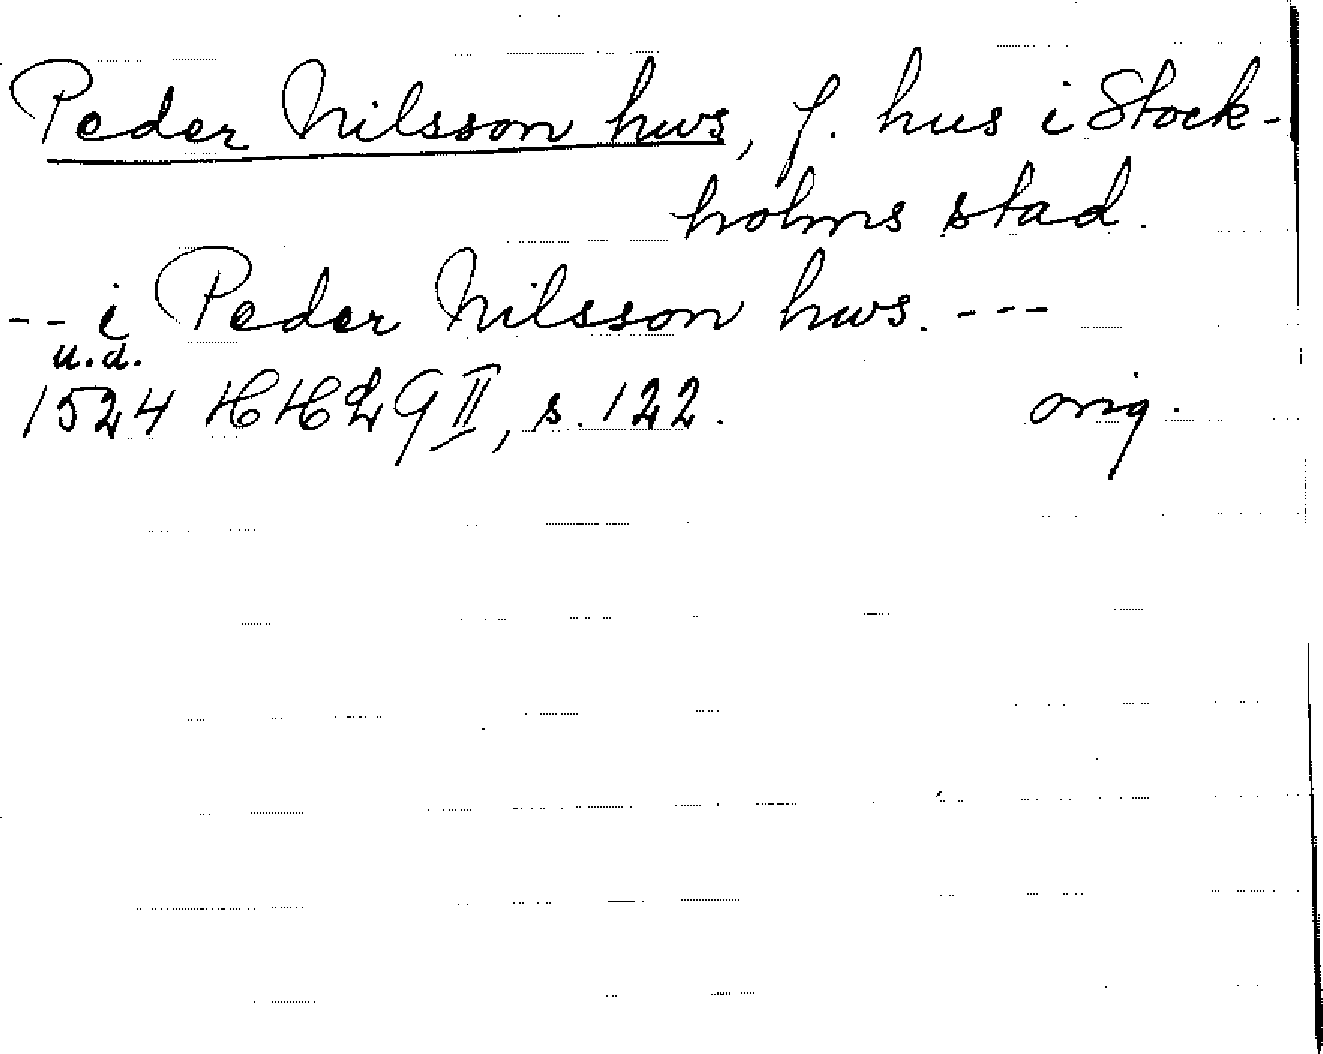 Peder Nilsson hws, f. hus i Stock-
holms stad.
-- i Peder Nilsson hws. ---
u.d.
1524 HHLQ II, s. 122. orig.